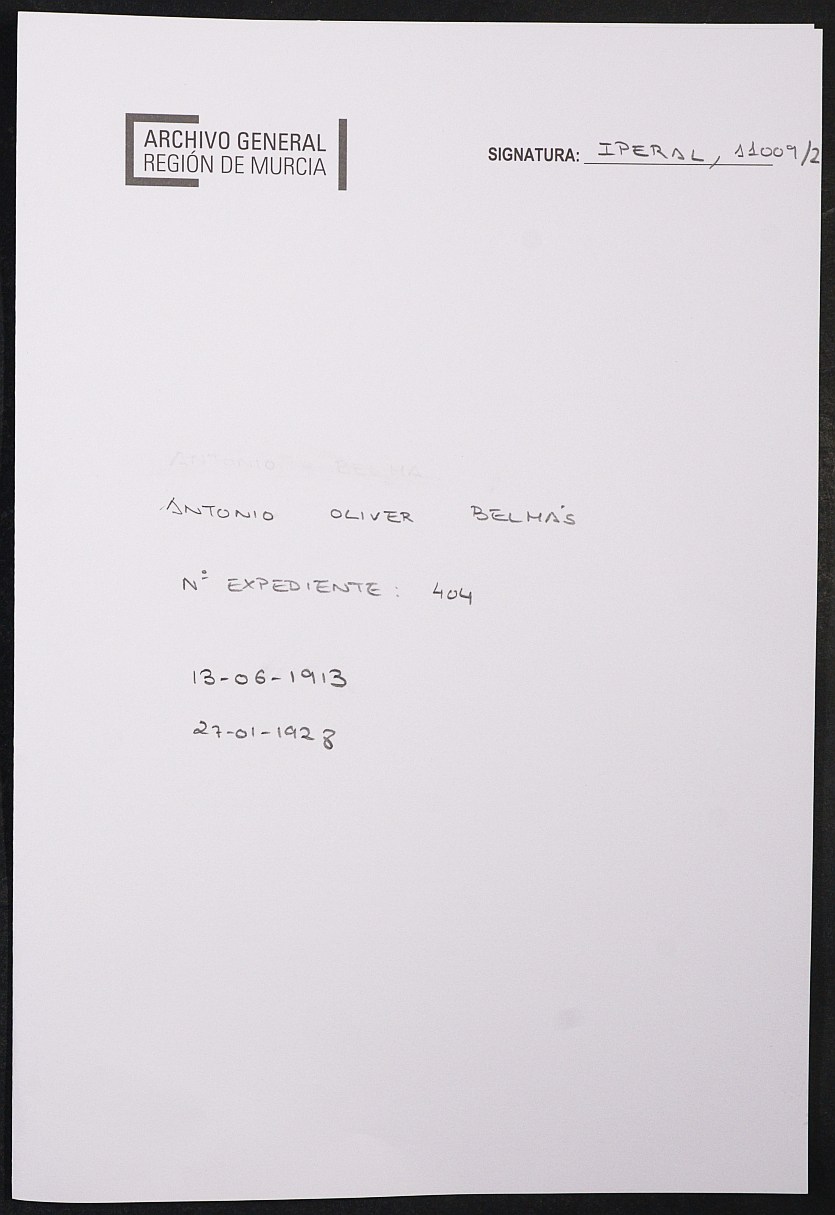 ARCHIVO GENERAL
REGIÓN DE MURCIA
SIGNATURA: IPERAL, 11009/2
ANTONIO OLIVER BELMÁS
Nº EXPEDIENTE: 404
13-06-1913
27-01-1928